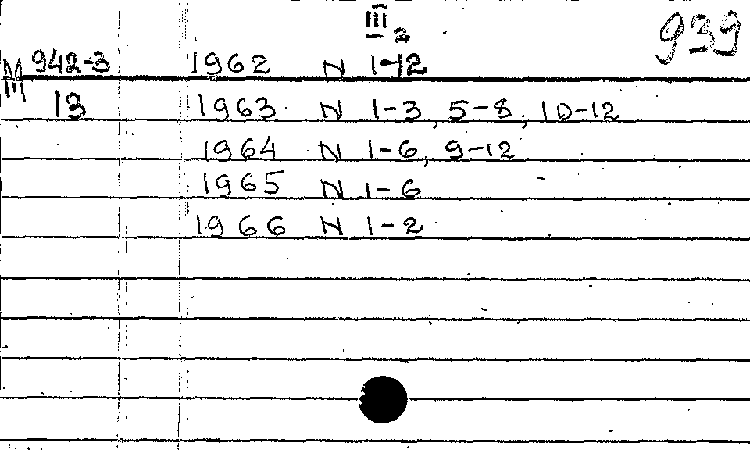 III₂ 939
M 942-3 1962 N 1-12
13 1963 N 1-3, 5-8, 10-12
1964 N 1-6, 9-12
1965 N 1-6
1966 N 1-2